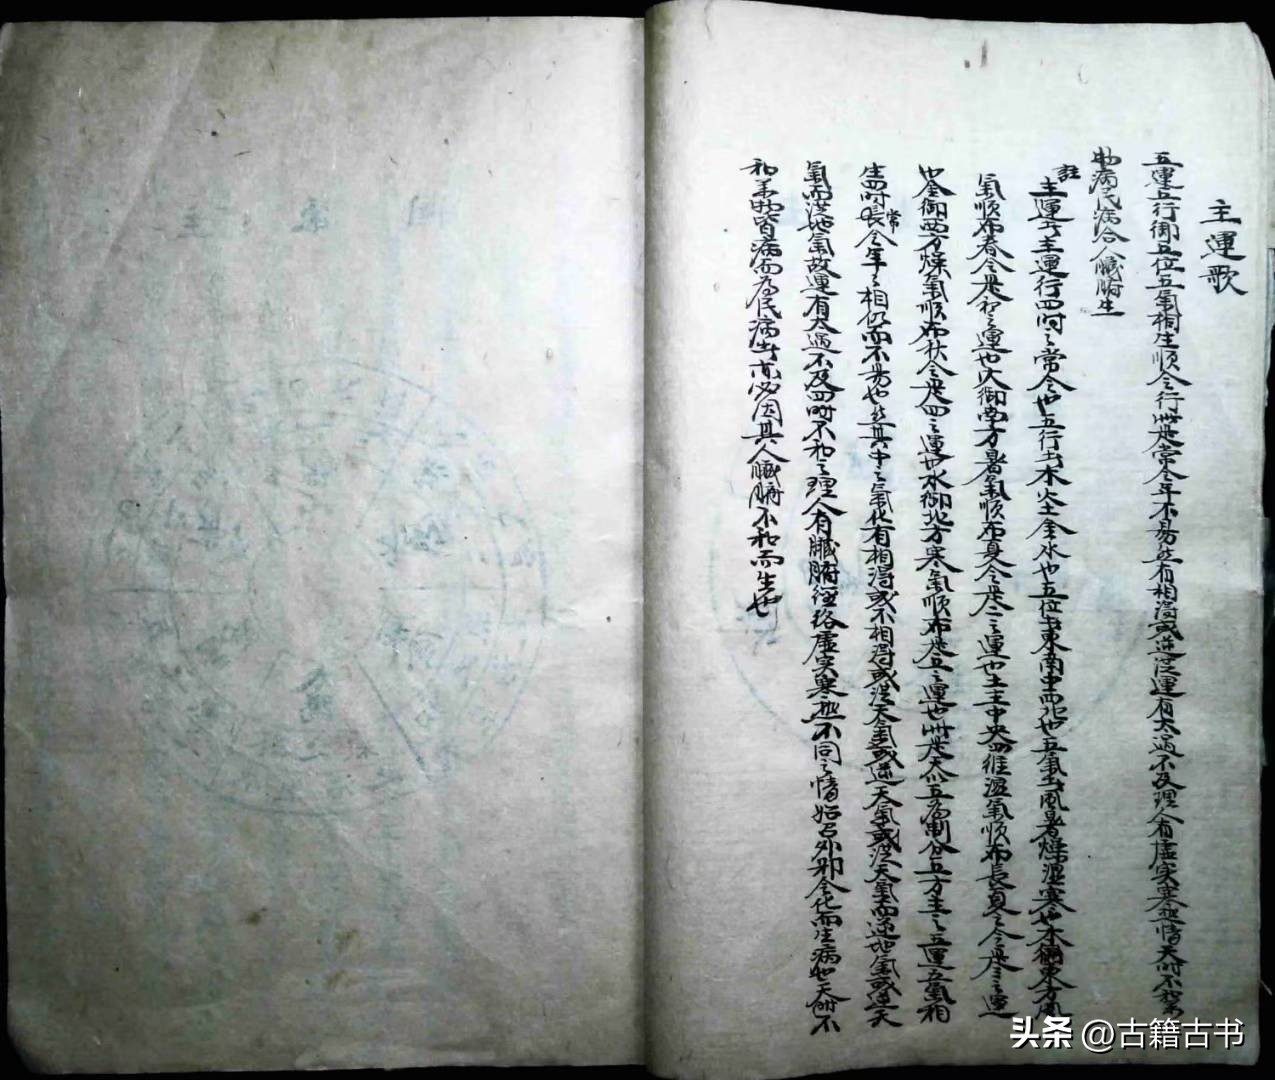 主運歌
五運五行御五位五氣相生順令行此是常令年不易然有相得或逆從運有太過不及理人有虛實寒熱情天時不和萬
物病民病合人臟腑生
註
主運者主運行四時之常令也五行者木火土金水也五位者東南中西北也五氣者風暑燥濕寒也木御東方風
氣順布春令是初之運也火御南方暑氣順布夏令是二之運也土主中央四維濕氣順布長夏之令是三之運
也金御西方燥氣順布秋令是四之運也水御北方寒氣順布是五之運也此是天以五為制分五方主之五運五氣相
生四時長常令年之相仍而不易也然其中之氣化有相得或不相得或從天氣或逆天氣或從天氣而逆地氣或逆天
氣而從地氣故運有太過不及四時不和之理人有臟腑經絡虛實寒熱不同之情始召外邪令化而生病也天時不
和萬物皆病而為民病者亦必因其人臟腑不和而生也
头条 @古籍古书